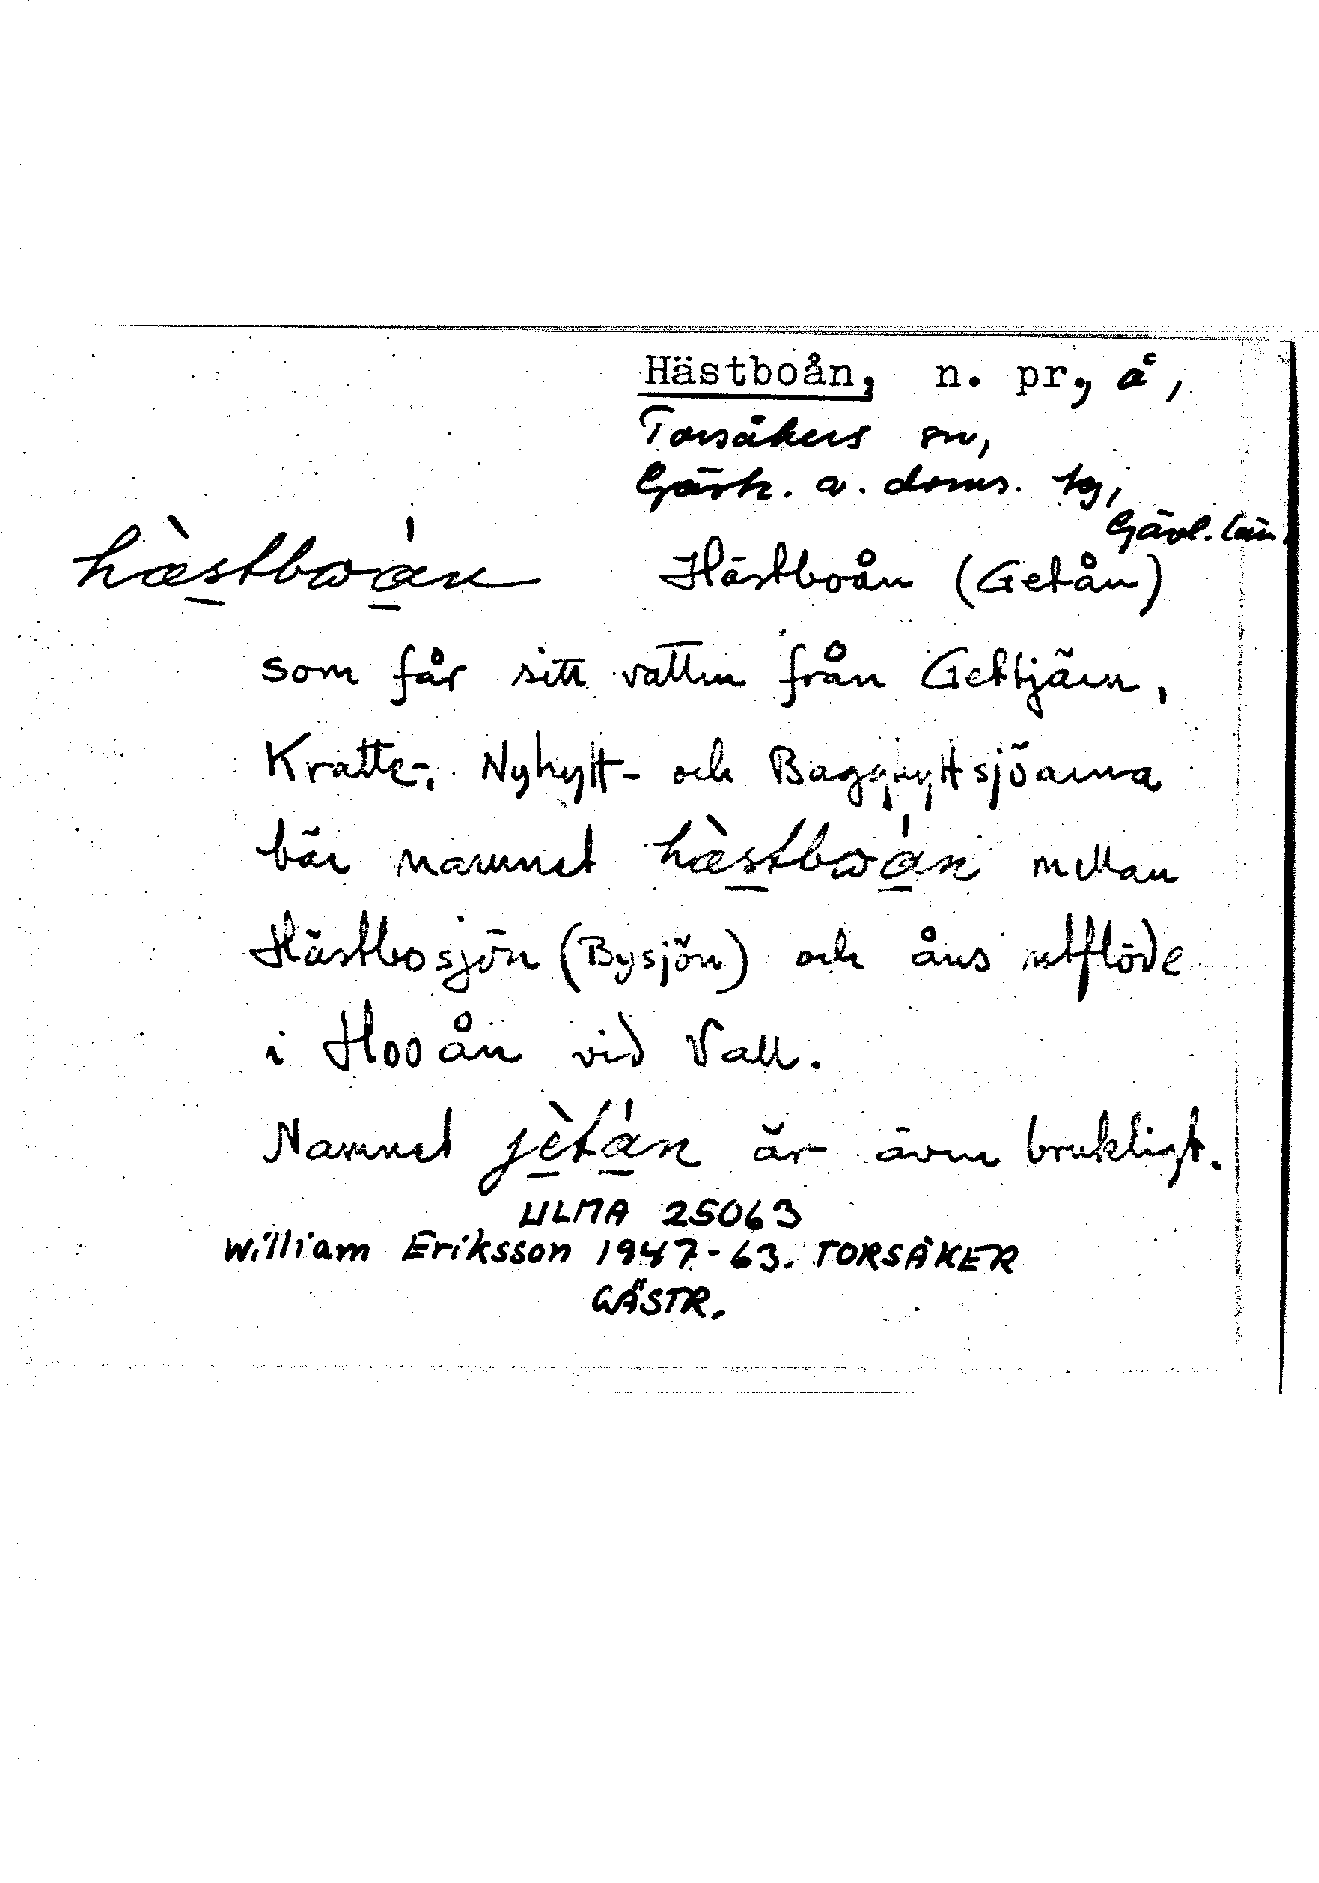 Hästboån, n. pr., å,
Torsåkers sn,
Gästr. ö. doms. tg,
Gävl. län.
hæ̀stbωán Hästboån (Getån)
som får sitt vatten från Gettjärn,
Kratte-, Nyhytt- och Bagghyttsjöarna
bär namnet hæ̀stbωán mellan
Hästbosjön (Bysjön) och åns utflöde
i Hooån vid Vall.
Namnet jètán är även brukligt.
ULMA 25063
William Eriksson 1947-63. TORSÅKER
GÄSTR.